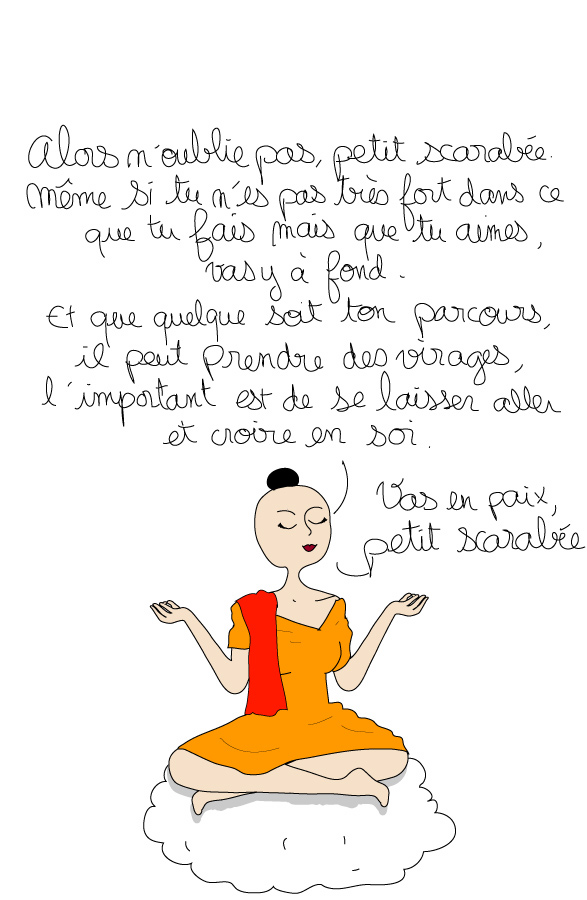 Alors n'oublie pas, petit scarabée.
Même si tu n'es pas très fort dans ce
que tu fais mais que tu aimes,
vas y à fond.
Et que quelque soit ton parcours,
il peut prendre des virages,
l'important est de se laisser aller
et croire en soi.
Vas en paix,
petit scarabée